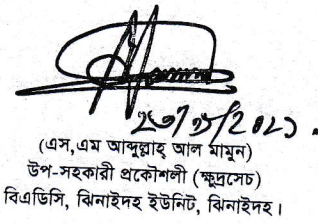 (এস,এম আব্দুল্লাহ্ আল মামুন)
উপ-সহকারী প্রকৌশলী (ক্ষুদ্রসেচ)
বিএডিসি, ঝিনাইদহ ইউনিট, ঝিনাইদহ।